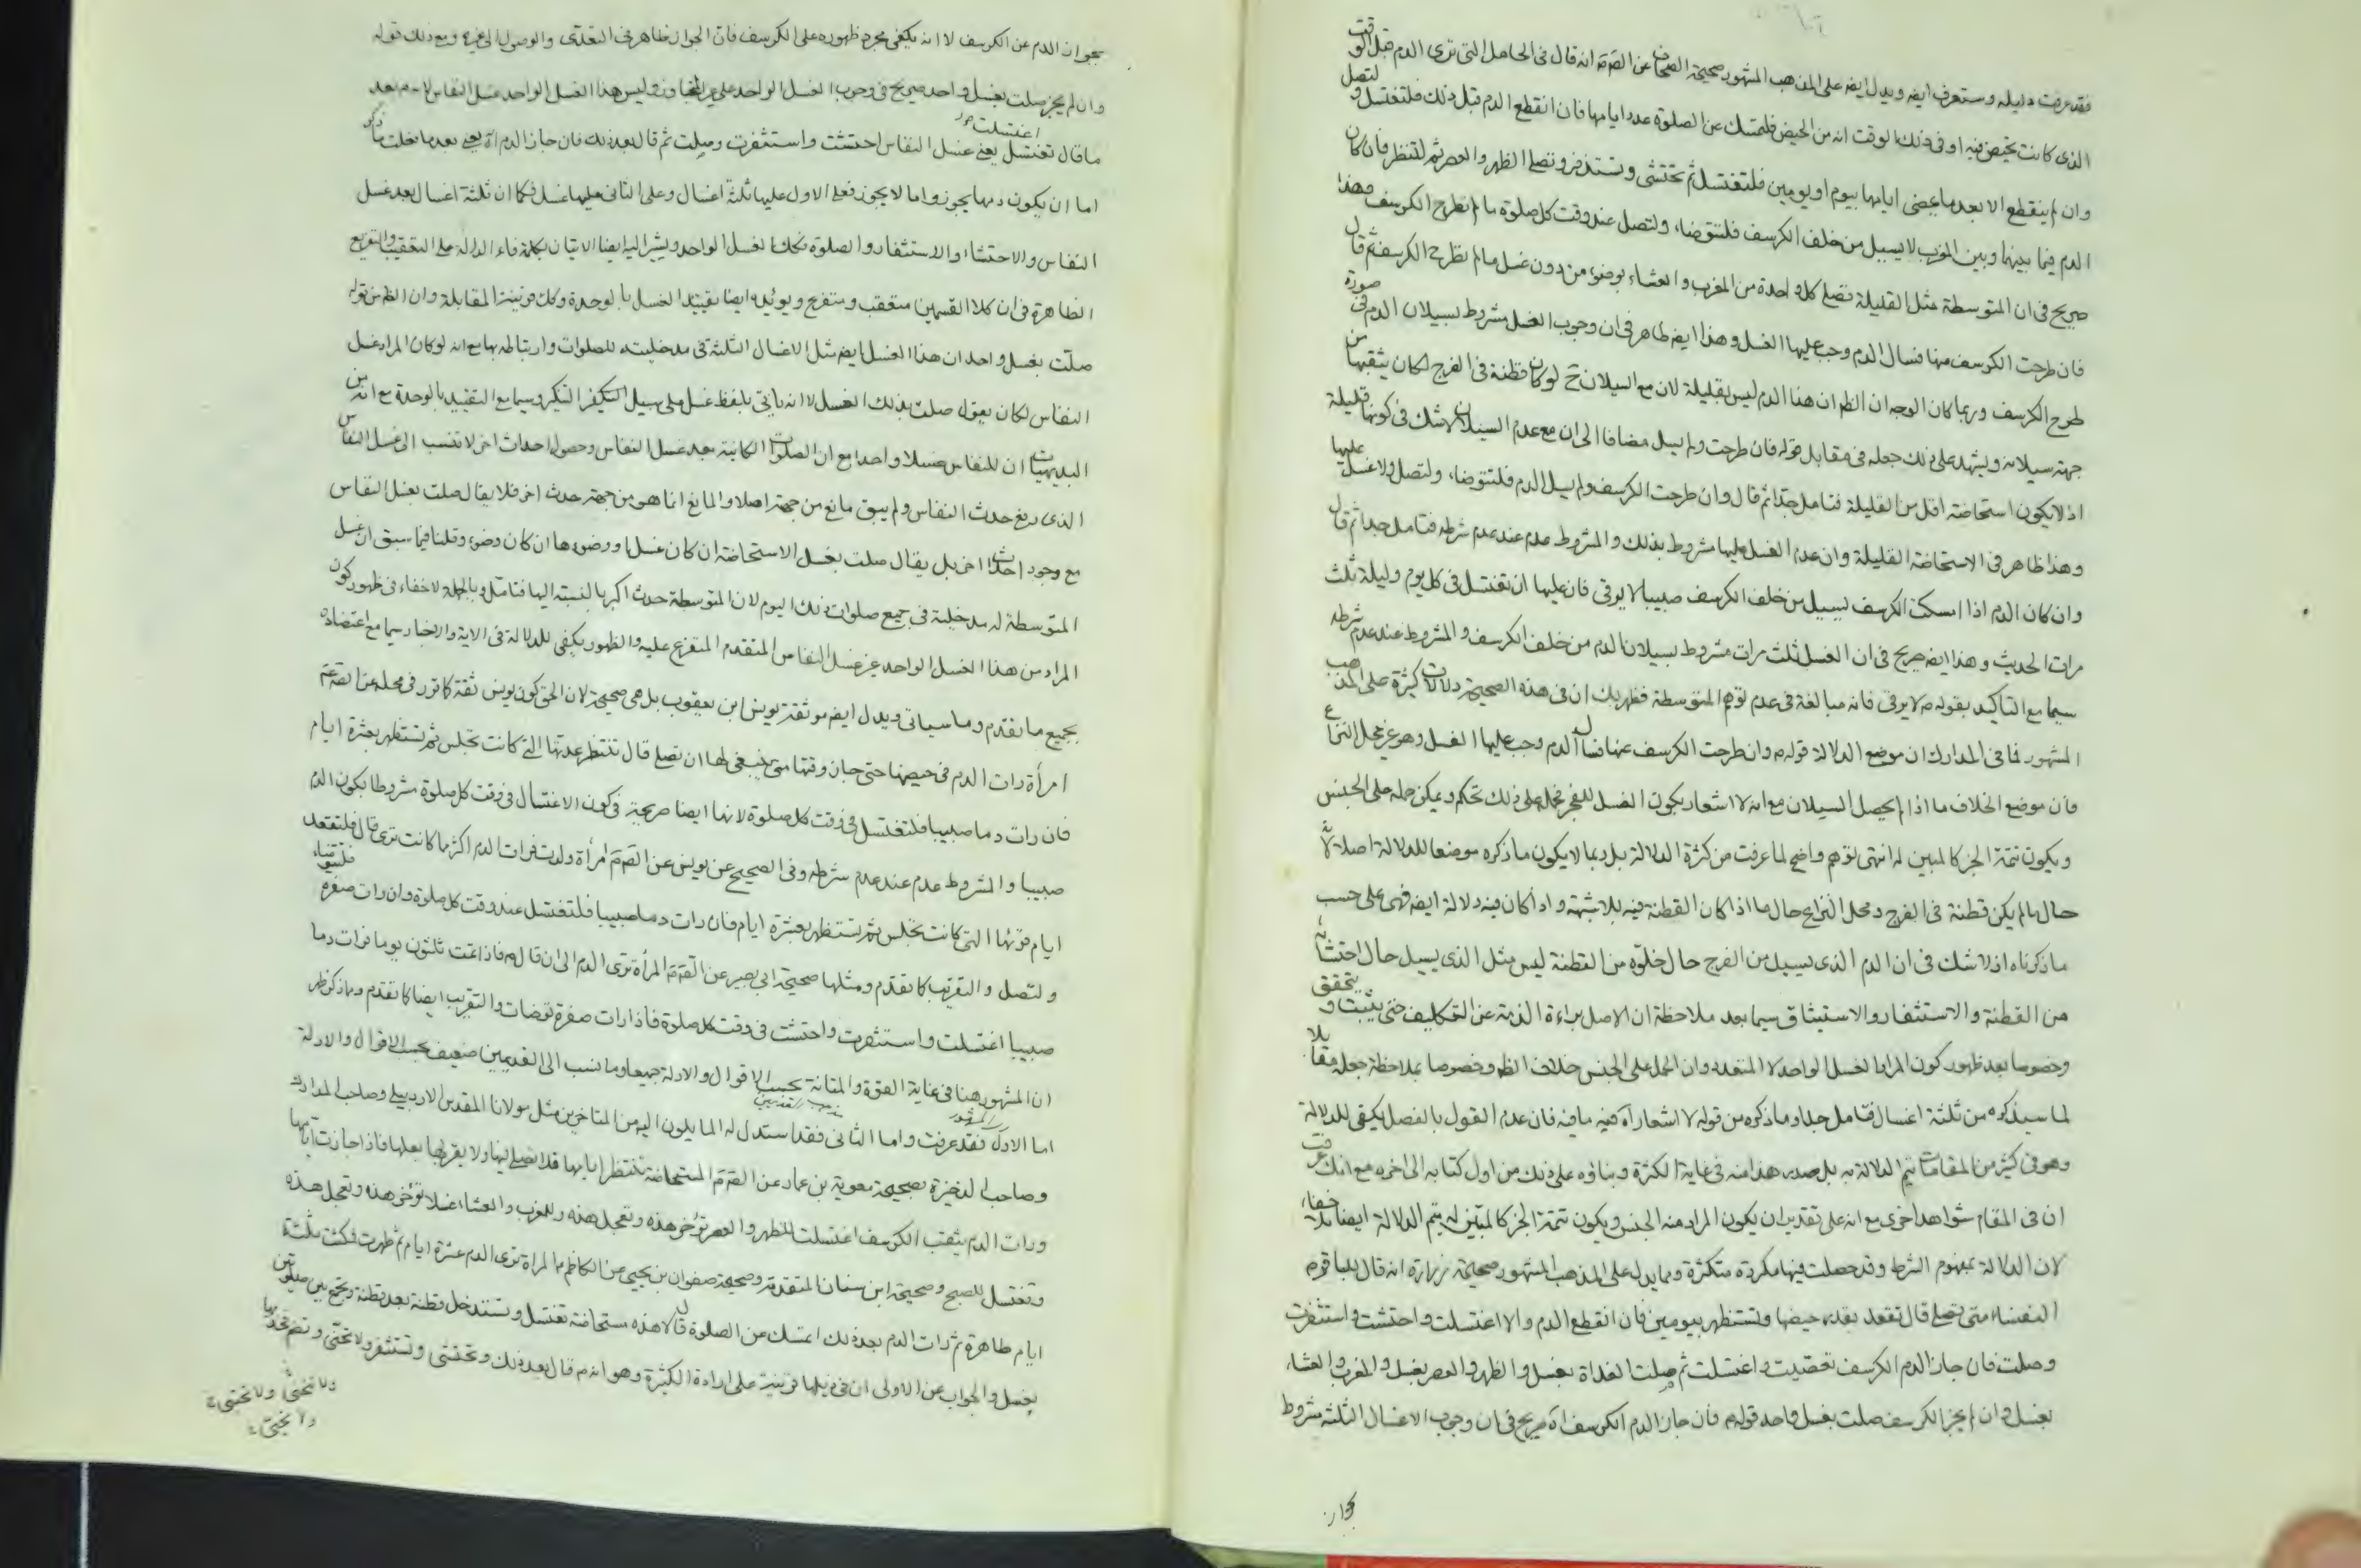 فقد عرفت دليله وستعرف ايضه ويدل ايضه على المذهب المشهور صحيحة الصحاف عن الصّ ع انه قال فى الحامل التى ترى الدم قبل الوقت
الذى كانت تحيض فيه او فى ذلك الوقت انه من الحيض فلتمسك عن الصلوة عدد ايامها فان انقطع الدم قبل ذلك فلتغتسل و لتصل
وان لم ينقطع الا بعد ما يمضى ايامها بيوم او يومين فلتغتسل ثم تحتشى وتستذفر وتصلے الظهر والعصر ثم لتنظر فان كان
الدم فيما بينها وبين المغرب لا يسيل من خلف الكرسف فلتتوضا، ولتصل عند وقت كل صلوة ما لم تطرح الكرسف فهذا
صريح فى ان المتوسطة مثل القليلة تصلے كل واحدة من المغرب والعشاء بوضوء من دون غسل ما لم تطرح الكرسف ثم قال
فان طرحت الكرسف منها فسال الدم وجب عليها الغسل وهذا ايضه ظاهر فى ان وجوب الغسل مشروط بسيلان الدم فى صورة
طرح الكرسف وربما كان الوجه ان الظ ان هذا الدم ليس بقليلة لان مع السيلان ح لو كان قطنة فى الفرج لكان يثقبها من
جهة سيلانه ويشهد على ذلك جعله فى مقابل قوله فان طرحت ولم يسل مضافا الى ان مع عدم السيلان لا شك فى كونها قليلة
اذ لا يكون استحاضة اقل من القليلة فتامل جدا ثم قال وان طرحت الكرسف ولم يسل الدم فلتتوضا، ولتصل ولا غسل عليها
وهذا ظاهر فى الاستحاضة القليلة وان عدم الغسل عليها مشروط بذلك والمشروط عدم عند عدم شرطه فتامل جدا ثم قال
وان كان الدم اذا امسكت الكرسف يسيل من خلف الكرسف صبيبا لا يرقى فان عليها ان تغتسل فى كل يوم وليلة ثلث
مرات الحديث وهذا ايضه صريح فى ان الغسل ثلث مرات مشروط بسيلان الدم من خلف الكرسف والمشروط عند عدم شرطه
سيما مع التاكيد بقوله ع لا يرقى فانه مبالغة فى عدم توهم المتوسطة فظهر بك ان فى هذه الصحيحة دلالات كثيرة على المذهب
المشهور فما فى المدارك ان موضع الدلالة قوله ع وان طرحت الكرسف عنها فسال الدم وجب عليها الغسل وهو غير محل النزاع
فان موضع الخلاف ما اذا لم يحصل السيلان مع انه لا اشعار بكون الغسل للفجر فحمله على ذلك تحكم ويمكن حمله على الجنس
ويكون تتمة الخبر كالمبين له انتهى توهم واضح لما عرفت من كثرة الدلالة بل ربما لا يكون ما ذكره موضعا للدلالة اصلا لانه
حال ما لم يكن قطنة فى الفرج ومحل النزاع حال ما اذا كان القطنة فيه بلا شبهة واذا كان فيه دلالة ايضه فهى على حسب
ما ذكرناه اذ لا شك فى ان الدم الذى يسيل من الفرج حال خلوه من القطنة ليس مثل الذى يسيل حال احتشائه
من القطنة والاستثفار والاستيثاق سيما بعد ملاحظة ان الاصل براءة الذمة عن التكليف حتى يثبت و يتحقق
وخصوصا بعد ظهور كون المراد الغسل الواحد لا المتعدد وان الحمل على الجنس خلاف الظ وخصوصا بملاحظة جعله مقابلا
لما سيذكره من ثلثة اغسال فتامل جدا وما ذكره من قوله لا اشعار آه فيه ما فيه فان عدم القول بالفصل يكفى للدلالة
وهو فى كثير من المقامات يتم الدلالة به بل صدر هذا منه فى غاية الكثرة وبناؤه على ذلك من اول كتابه الى اخره مع انك عرفت
ان فى المقام شواهد اخرى مع انه على تقدير ان يكون المراد منه الجنس ويكون تتمة الخبر كالمبين له يتم الدلالة ايضا بلا خفاء
لان الدلالة بمفهوم الشرط وقد حصلت فيها مكررة متكثرة ومما يدل على المذهب المشهور صحيحة زرارة انه قال للباقر ع
النفساء متى تصلے قال تقعد بقدر حيضها وتستظهر بيومين فان انقطع الدم والا اغتسلت واحتشت واستثفرت
وصلت فان جاز الدم الكرسف تعصبت واغتسلت ثم صلت الغداة بغسل والظهر والعصر بغسل والمغرب والعشاء
بغسل وان لم يجز الكرسف صلت بغسل واحد قوله ع فان جاز الدم الكرسف آه صريح فى ان وجوب الاغسال الثلثة مشروط
بجواز
بجواز الدم عن الكرسف لا انه يكفى مجرد ظهوره على الكرسف فان الجواز ظاهر فى التعدى والوصول الى غيره ومع ذلك قوله
وان لم يجز صلت بغسل واحد صريح فى وجوب الغسل الواحد على غير المتجاوز وليس هذا الغسل الواحد غسل النفاس لانه بعد
ما قال تغتسل يعنى غسل النفاس احتشت واستثفرت وصلت ثم قال بعد ذلك فان جاز الدم آه يعنى بعد ما فعلت ما ذكر
اغتسلت
اما ان يكون دمها يجوز واما لا يجوز فعلى الاول عليها ثلثة اغسال وعلى الثانى عليها غسل فكما ان ثلثة اغسال بعد غسل
النفاس والاحتشاء والاستثفار والصلوة فكذا الغسل الواحد ويشير اليه ايضا الاتيان بكلمة فاء الدالة على التعقيب والتفريع
الظاهرة فى ان كلا القسمين متعقب ومتفرع ويؤيده ايضا تقييد الغسل بالوحدة وكك قرينة المقابلة وان الظ من قوله
صلت بغسل واحد ان هذا الغسل ايضه مثل الاغسال الثلثة فى مدخليته للصلوات وارتباطه بها مع انه لو كان المراد غسل
النفاس لكان يقول صلت بذلك الغسل لا انه ياتى بلفظ غسل على سبيل التنكير سيما مع التقييد بالوحدة مع انه من
البديهيات ان للنفاس غسلا واحدا مع ان الصلوات الكائنة بعد غسل النفاس وحصول احداث اخر لا تنسب الى غسل النفاس
الذى رفع حدث النفاس ولم يبق مانع من جهة اصلا والمانع انما هو من جهة حدث اخر فلا يقال صلت بغسل النفاس
مع وجود احداث اخر بل يقال صلت بغسل الاستحاضة ان كان غسلا ووضوءها ان كان وضوء وقلنا فيما سبق ان غسل
المتوسطة له مدخلية فى جميع صلوات ذلك اليوم لان المتوسطة حدث اكبر بالنسبة اليها فتامل وبالجملة لا خفاء فى ظهور كون
المراد من هذا الغسل الواحد غير غسل النفاس المتقدم المتفرع عليه والظهور يكفى للدلالة فى الاية والاخبار سيما مع اعتضاده
بجميع ما تقدم وما سياتى ويدل ايضه موثقة يونس ابن يعقوب بل هى صحيحة لان الحق كون يونس ثقة كما قرر فى محله عن الصّ ع
امرأة رات الدم فى حيضها حتى جاز وقتها متى ينبغى لها ان تصلے قال تنتظر عدتها التے كانت تجلس ثم تستظهر بعشرة ايام
فان رات دما صبيبا فلتغتسل فى وقت كل صلوة لانها ايضا صريحة فى كون الاغتسال فى وقت كل صلوة مشروطا بكون الدم
صبيبا والمشروط عدم عند عدم شرطه وفى الصحيح عن يونس عن الصّ ع امرأة ولدت فرات الدم اكثر مما كانت ترى قال فلتقعد
ايام قرئها التى كانت تجلس ثم تستظهر بعشرة ايام فان رات دما صبيبا فلتغتسل عند وقت كل صلوة وان رات صفرة فلتتوضا،
ولتصل والتقريب كما تقدم ومثلها صحيحة ابى بصير عن الصّ ع المرأة ترى الدم الى ان قال ع فاذا تمت ثلثون يوما فرات دما
صبيبا اغتسلت واستثفرت واحتشت فى وقت كل صلوة فاذا رات صفرة توضات والتقريب ايضا كما تقدم ومما ذكر ظهر
ان المشهور هنا فى غاية القوة والمتانة بحسب الاقوال والادلة جميعا وما نسب الى القديمين ضعيف بحسب الاقوال والادلة
اما الاول فقد عرفت واما الثانى فقد استدل له المايلون اليه من المتاخرين مثل مولانا المقدس الاردبيلے وصاحب المدارك
وصاحب الذخيرة بصحيحة معوية بن عمار عن الصّ ع المستحاضة تنتظر ايامها فلا تصلے فيها ولا يقربها بعلها فاذا جازت ايامها
ورات الدم يثقب الكرسف اغتسلت للظهر والعصر تؤخر هذه وتعجل هذه وللمغرب والعشاء غسلا تؤخر هذه وتعجل هذه
وتغتسل للصبح وصحيحة ابن سنان المتقدمة وصحيحة صفوان بن يحيى عن الكاظم ع المراة ترى الدم عشرة ايام ثم طهرت فمكثت ثلثة
ايام طاهرة ثم رات الدم بعد ذلك اتمسك عن الصلوة قال لا هذه مستحاضة تغتسل وتستدخل قطنة بعد قطنة وتجمع بين صلوتين
بغسل والجواب عن الاولى ان فى ذيلها قرينة على ارادة الكثيرة وهو انه ع قال بعد ذلك وتحتشى وتستثفر ولا تحنى وتضم فخذيها